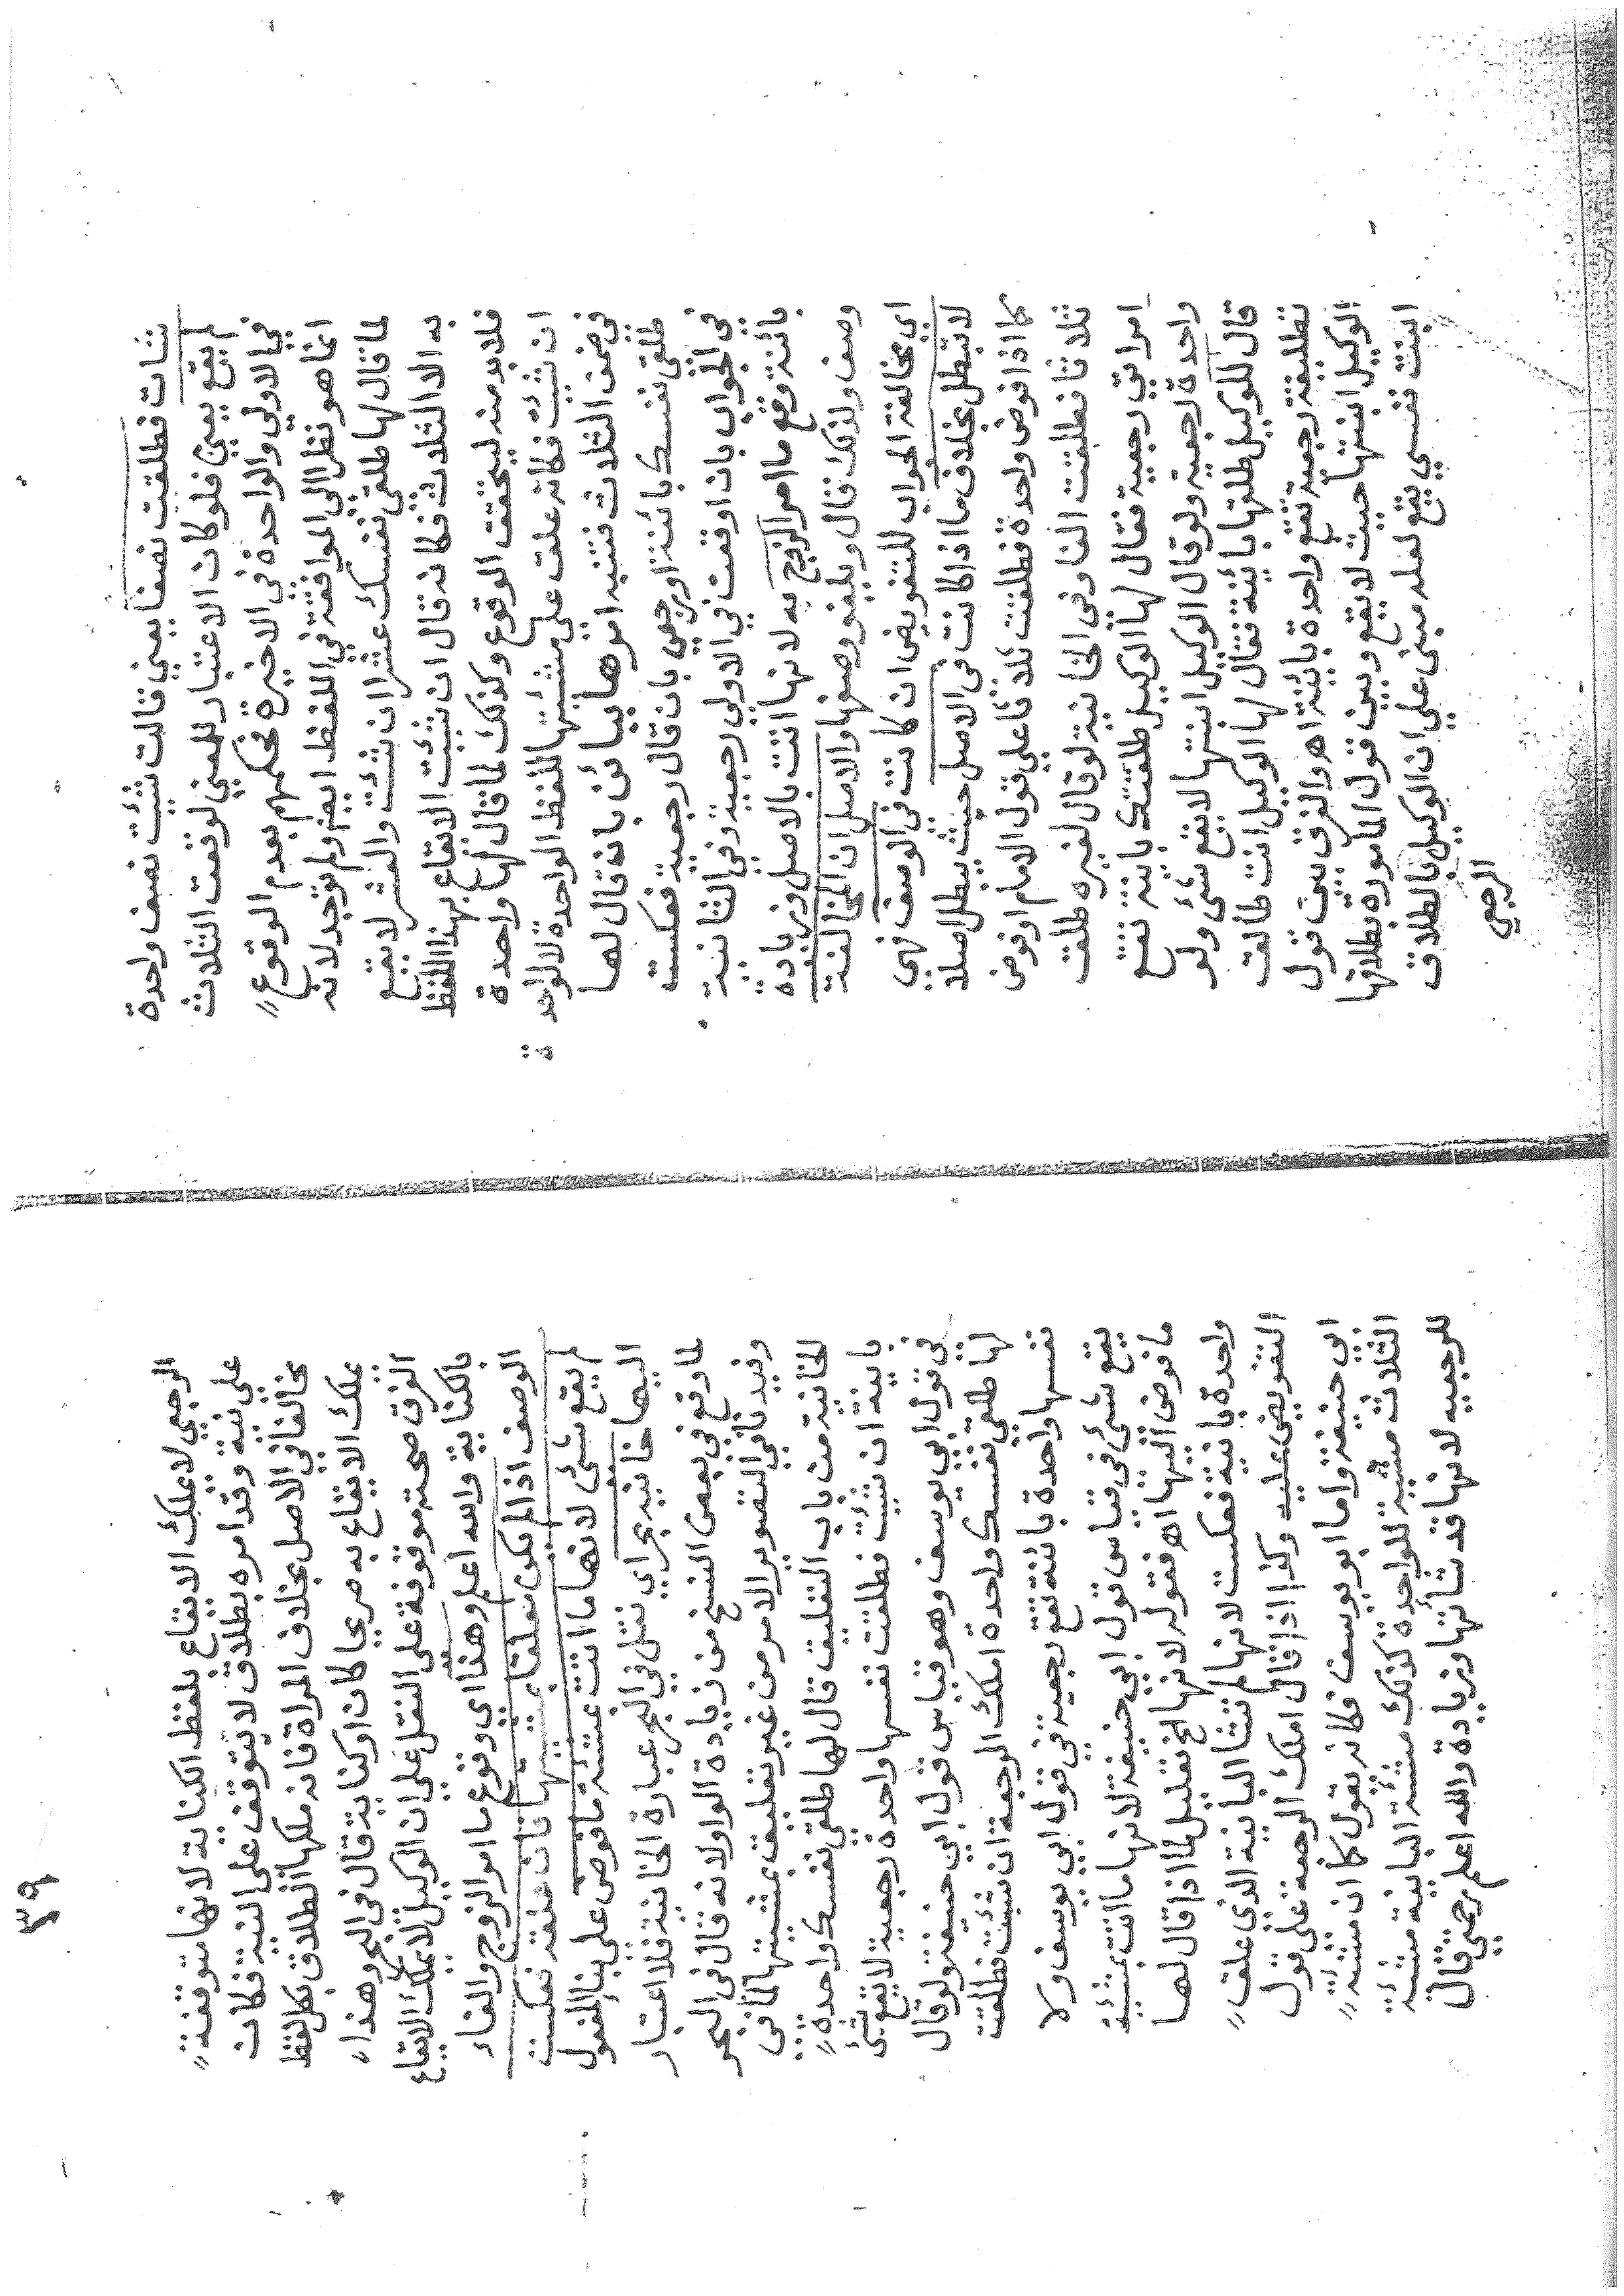 شئات فطلقت نصفا يعني قالت شئت نصف واحدة
لم يقع يعني فلو كان الاعتبار للمعنى لوقعت الثلاث
في الاولى والواحدة في الاخيرة فحكمهم بعدم الوقوع
انما هو نظرا الى الموافقة في اللفظ ايضا ولم توجد لانه
لما قال لها طلقي نفسك عشرا ان شئت والعشر لا يقع
به الا الثلاث فكانه قال ان شئت الايقاع بهذا اللفظ
فلا بد منه ليتحقق الوقوع وكذلك لما قال لها واحدة
ان شئت فكانه علق على مشيئتها للفظ الواحدة لا الواحدة
في ضمن الثلاث فتنبه امرها ببائن بانه قال لها
طلقي نفسك بائنة او رجعي بان قال رجعية فعكست
في الجواب بان اوقعت في الاولى رجعية وفي الثانية
بائنة وقع ما امر الزوج به لانها اتت بالاصل وزيادة
وصف ولذلك قال ويلغو وصفها والاصل ان المخالفة
اي مخالفة الجواب للتفويض ان كانت في الوصف فهي
لا تبطل بخلاف ما اذا كانت في الاصل حيث يبطل اصلا
كما اذا فوض واحدة فطلقت ثلاثا على قول الامام او فوض
ثلاثا فطلقت الفا وفي الخانية لو قال لغيره طلق
امراتي رجعية فقال لها الوكيل طلقتك بائنة تقع
واحدة رجعية ولو قال الوكيل ابنتها لا يقع شئ ولو
قال للوكيل طلقها بائنة فقال لها الوكيل انت طالق
تطليقة رجعية تقع واحدة بائنة اهـ والفرق بين قول
الوكيل ابنتها حيث لا يقع وبين قول المأمورة بطلاقها
ابنت نفسي يقع لعله مبني على ان الوكيل بالطلاق
الرجعي
٣٩
الرجعي لا يملك الايقاع بلفظ الكناية لانها متوقفة
على نية وقد امره بطلاق لا يتوقف على النية فكان
مخالفا في الاصل بخلاف المراة فانه ملكها الطلاق بكل لفظ
يملك الايقاع به صريحا كان او كناية قال في البحر وهذا
الفرق صحته موقوفة على النقل على ان الوكيل لا يملك الايقاع
بالكناية والله اعلم وهذا اي وقوع ما امر الزوج والغاء
الوصف اذا لم يكن معلقا بمشيئتها فان علقه فعكست
لم يقع شئ لانها ما اتت بمشيئة ما فوض على بناء المفعول
اليها خانية بحر اي نقل في البحر عبارة الخانية فلا اعتبار
لما وقع في بعض النسخ من زيادة الواو لانه قال في البحر
وقيد نا في التصوير الامر من غير تعليق بمشيئتها لما في
الخانية من باب التعليق قال لها طلقي نفسك واحدة
باينة ان شئت فطلقت نفسها واحدة رجعية لا يقع شئ
في قول ابي يوسف وهو قياس قول ابي حنيفة ولو قال
لها طلقي نفسك واحدة املك الرجعة ان شئت فطلقت
نفسها واحدة بائنة تقع رجعية في قول ابي يوسف ولا
يقع شئ في قياس قول ابي حنيفة لانها ما اتت بمشيئة
ما فوض اليها اهـ فقوله لانها الخ تعليل لما اذا قال لها
واحدة باينة فعكست لانها لم تشا الباينة الذي علق
التفويض عليه وكذا اذا قال املك الرجعة على قول
ابي حنيفة واما ابو يوسف فكانه يقول كما ان مشيئة
الثلاث مشيئة للواحدة كذلك مشيئة الباينة مشيئة
للرجعية لانها قد شأتها وزيادة والله اعلم رحمتي قال